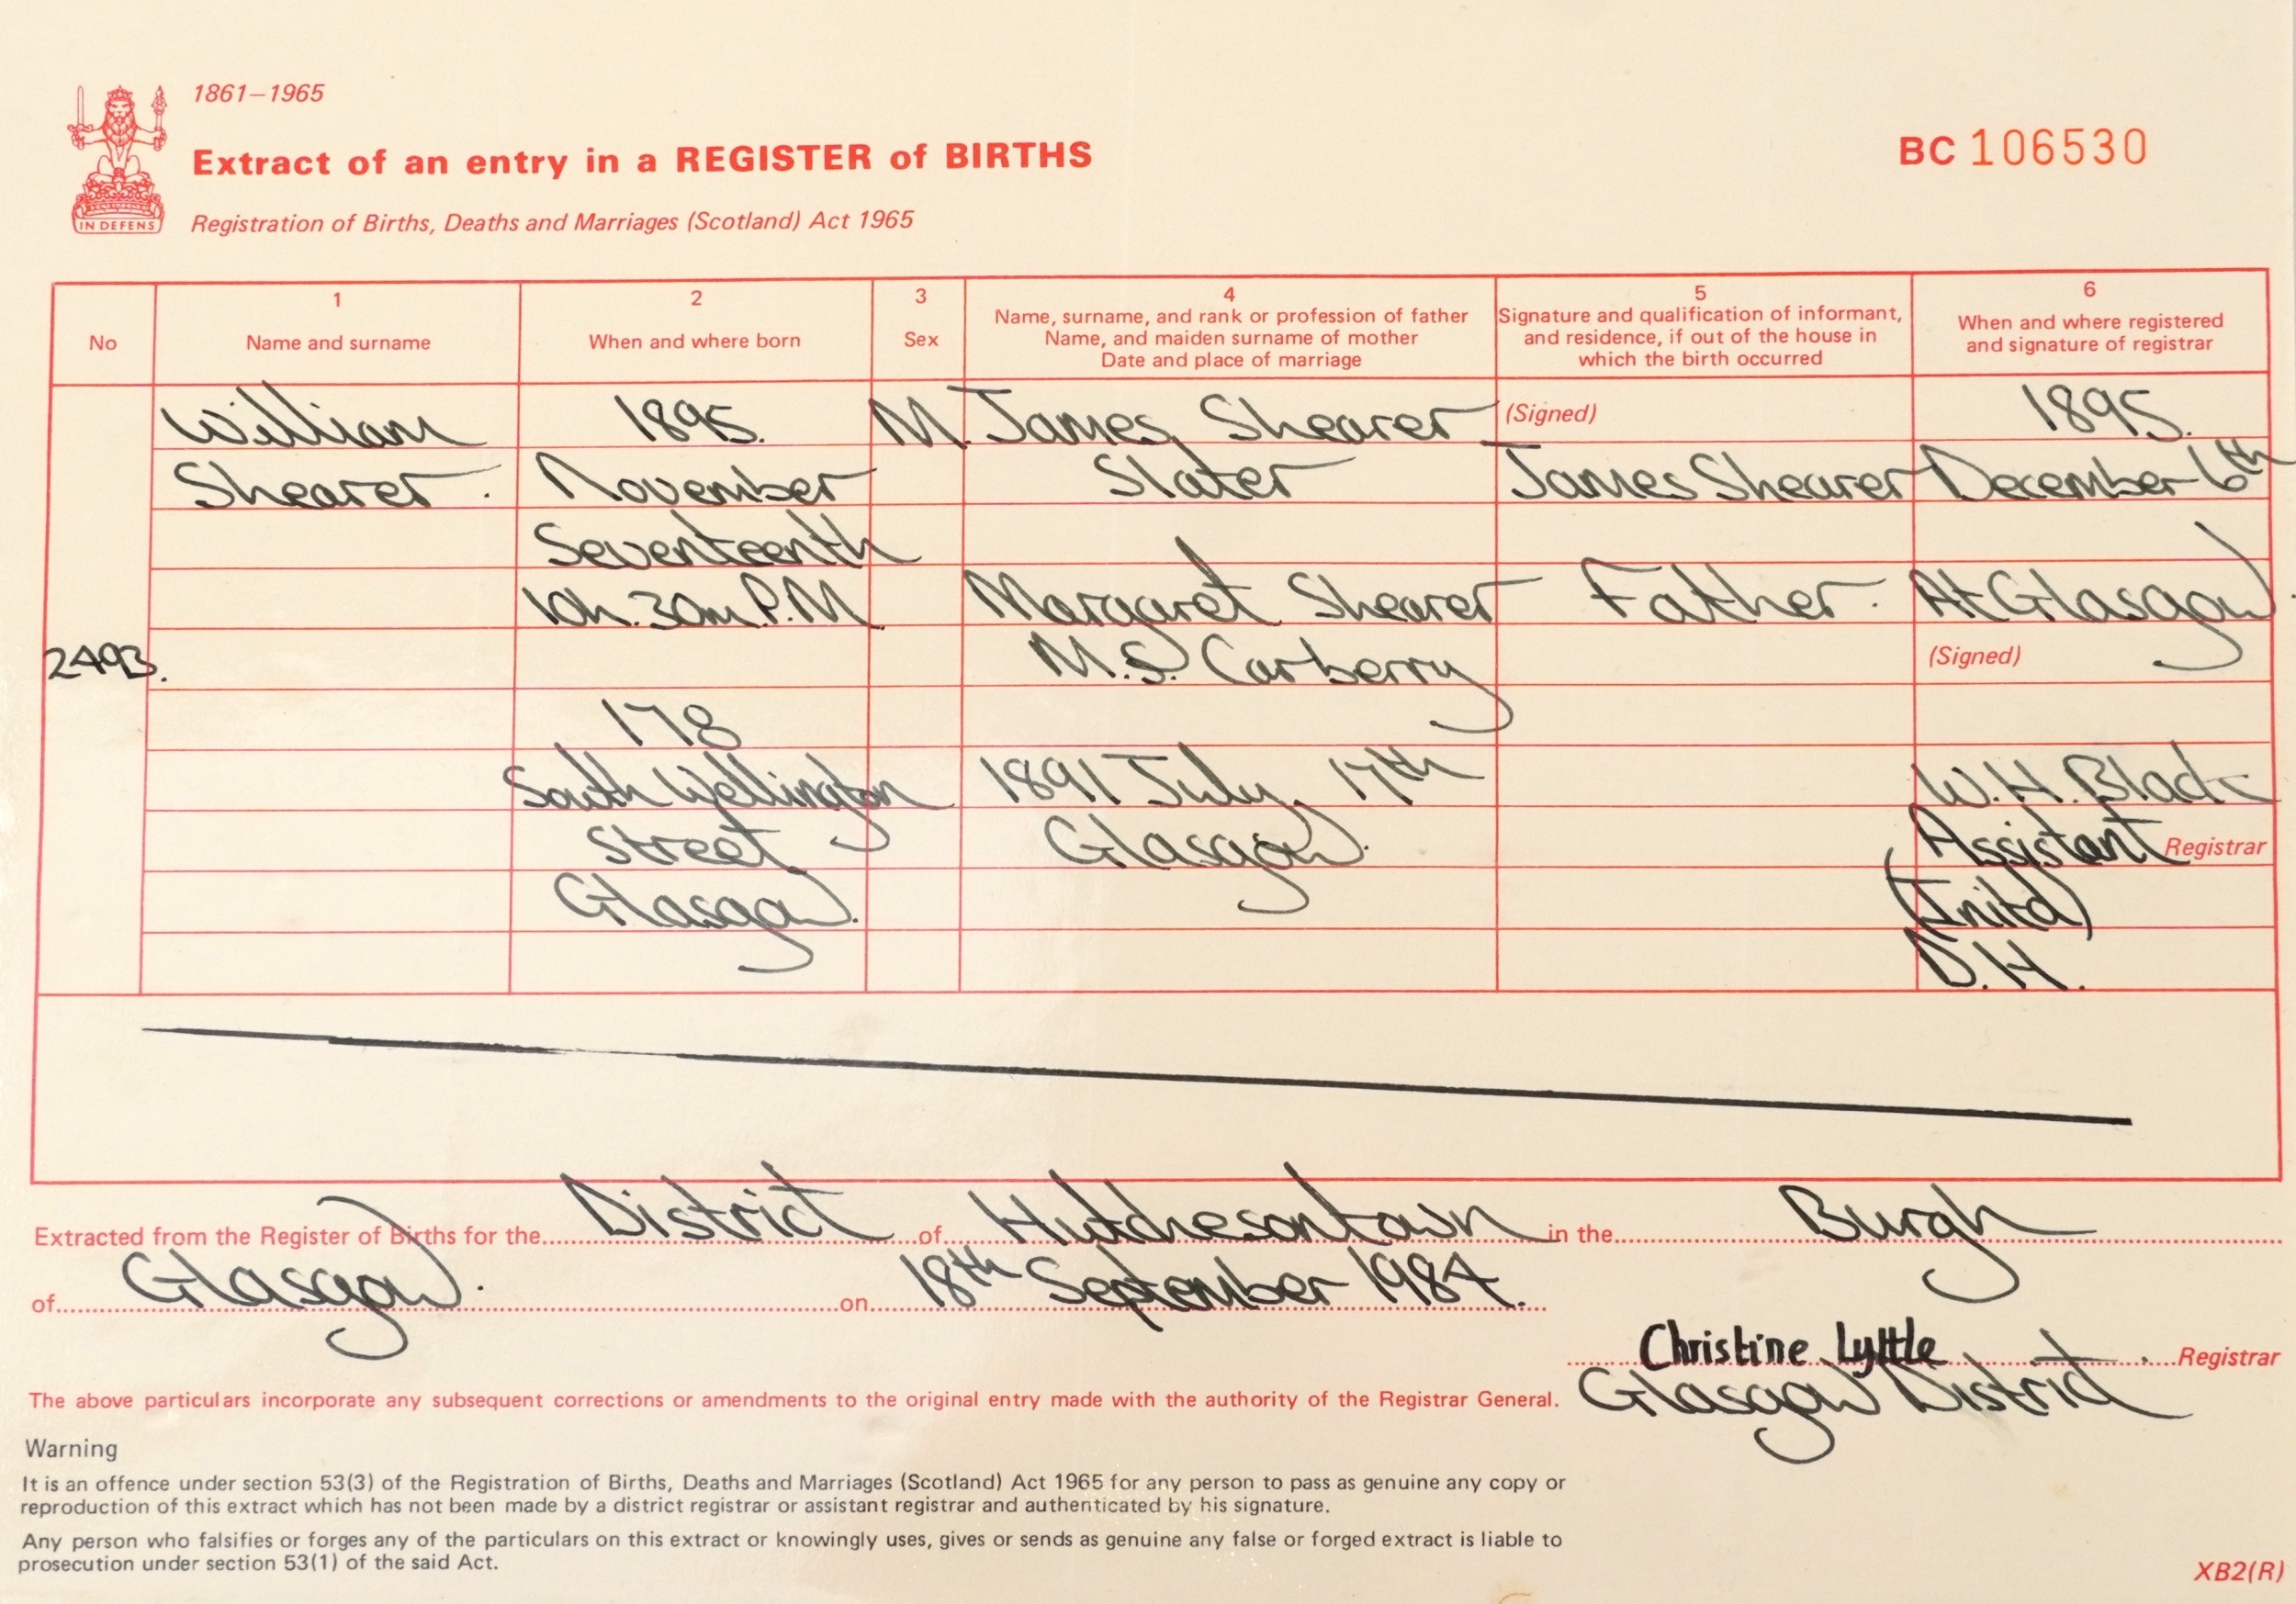 1861–1965
Extract of an entry in a REGISTER of BIRTHS
BC 106530
IN DEFENS
Registration of Births, Deaths and Marriages (Scotland) Act 1965
No
1
Name and surname
2
When and where born
3
Sex
4
Name, surname, and rank or profession of father
Name, and maiden surname of mother
Date and place of marriage
5
Signature and qualification of informant,
and residence, if out of the house in
which the birth occurred
6
When and where registered
and signature of registrar
2493.
William
Shearer.
1895.
November
Seventeenth
10h. 30m. P.M.
178
South Wellington
Street
Glasgow.
M.
James Shearer
Slater
Margaret Shearer
M.S. Carberry
1891 July 17th
Glasgow.
(Signed)
James Shearer
Father.
1895.
December 6th
At Glasgow.
(Signed)
W.H. Black
Assistant Registrar
(Initd)
D.H.
Extracted from the Register of Births for the District of Hutchesontown in the Burgh
of Glasgow. on 18th September 1984.
Christine Lyttle Registrar
Glasgow District
The above particulars incorporate any subsequent corrections or amendments to the original entry made with the authority of the Registrar General.
Warning
It is an offence under section 53(3) of the Registration of Births, Deaths and Marriages (Scotland) Act 1965 for any person to pass as genuine any copy or
reproduction of this extract which has not been made by a district registrar or assistant registrar and authenticated by his signature.
Any person who falsifies or forges any of the particulars on this extract or knowingly uses, gives or sends as genuine any false or forged extract is liable to
prosecution under section 53(1) of the said Act.
XB2(R)